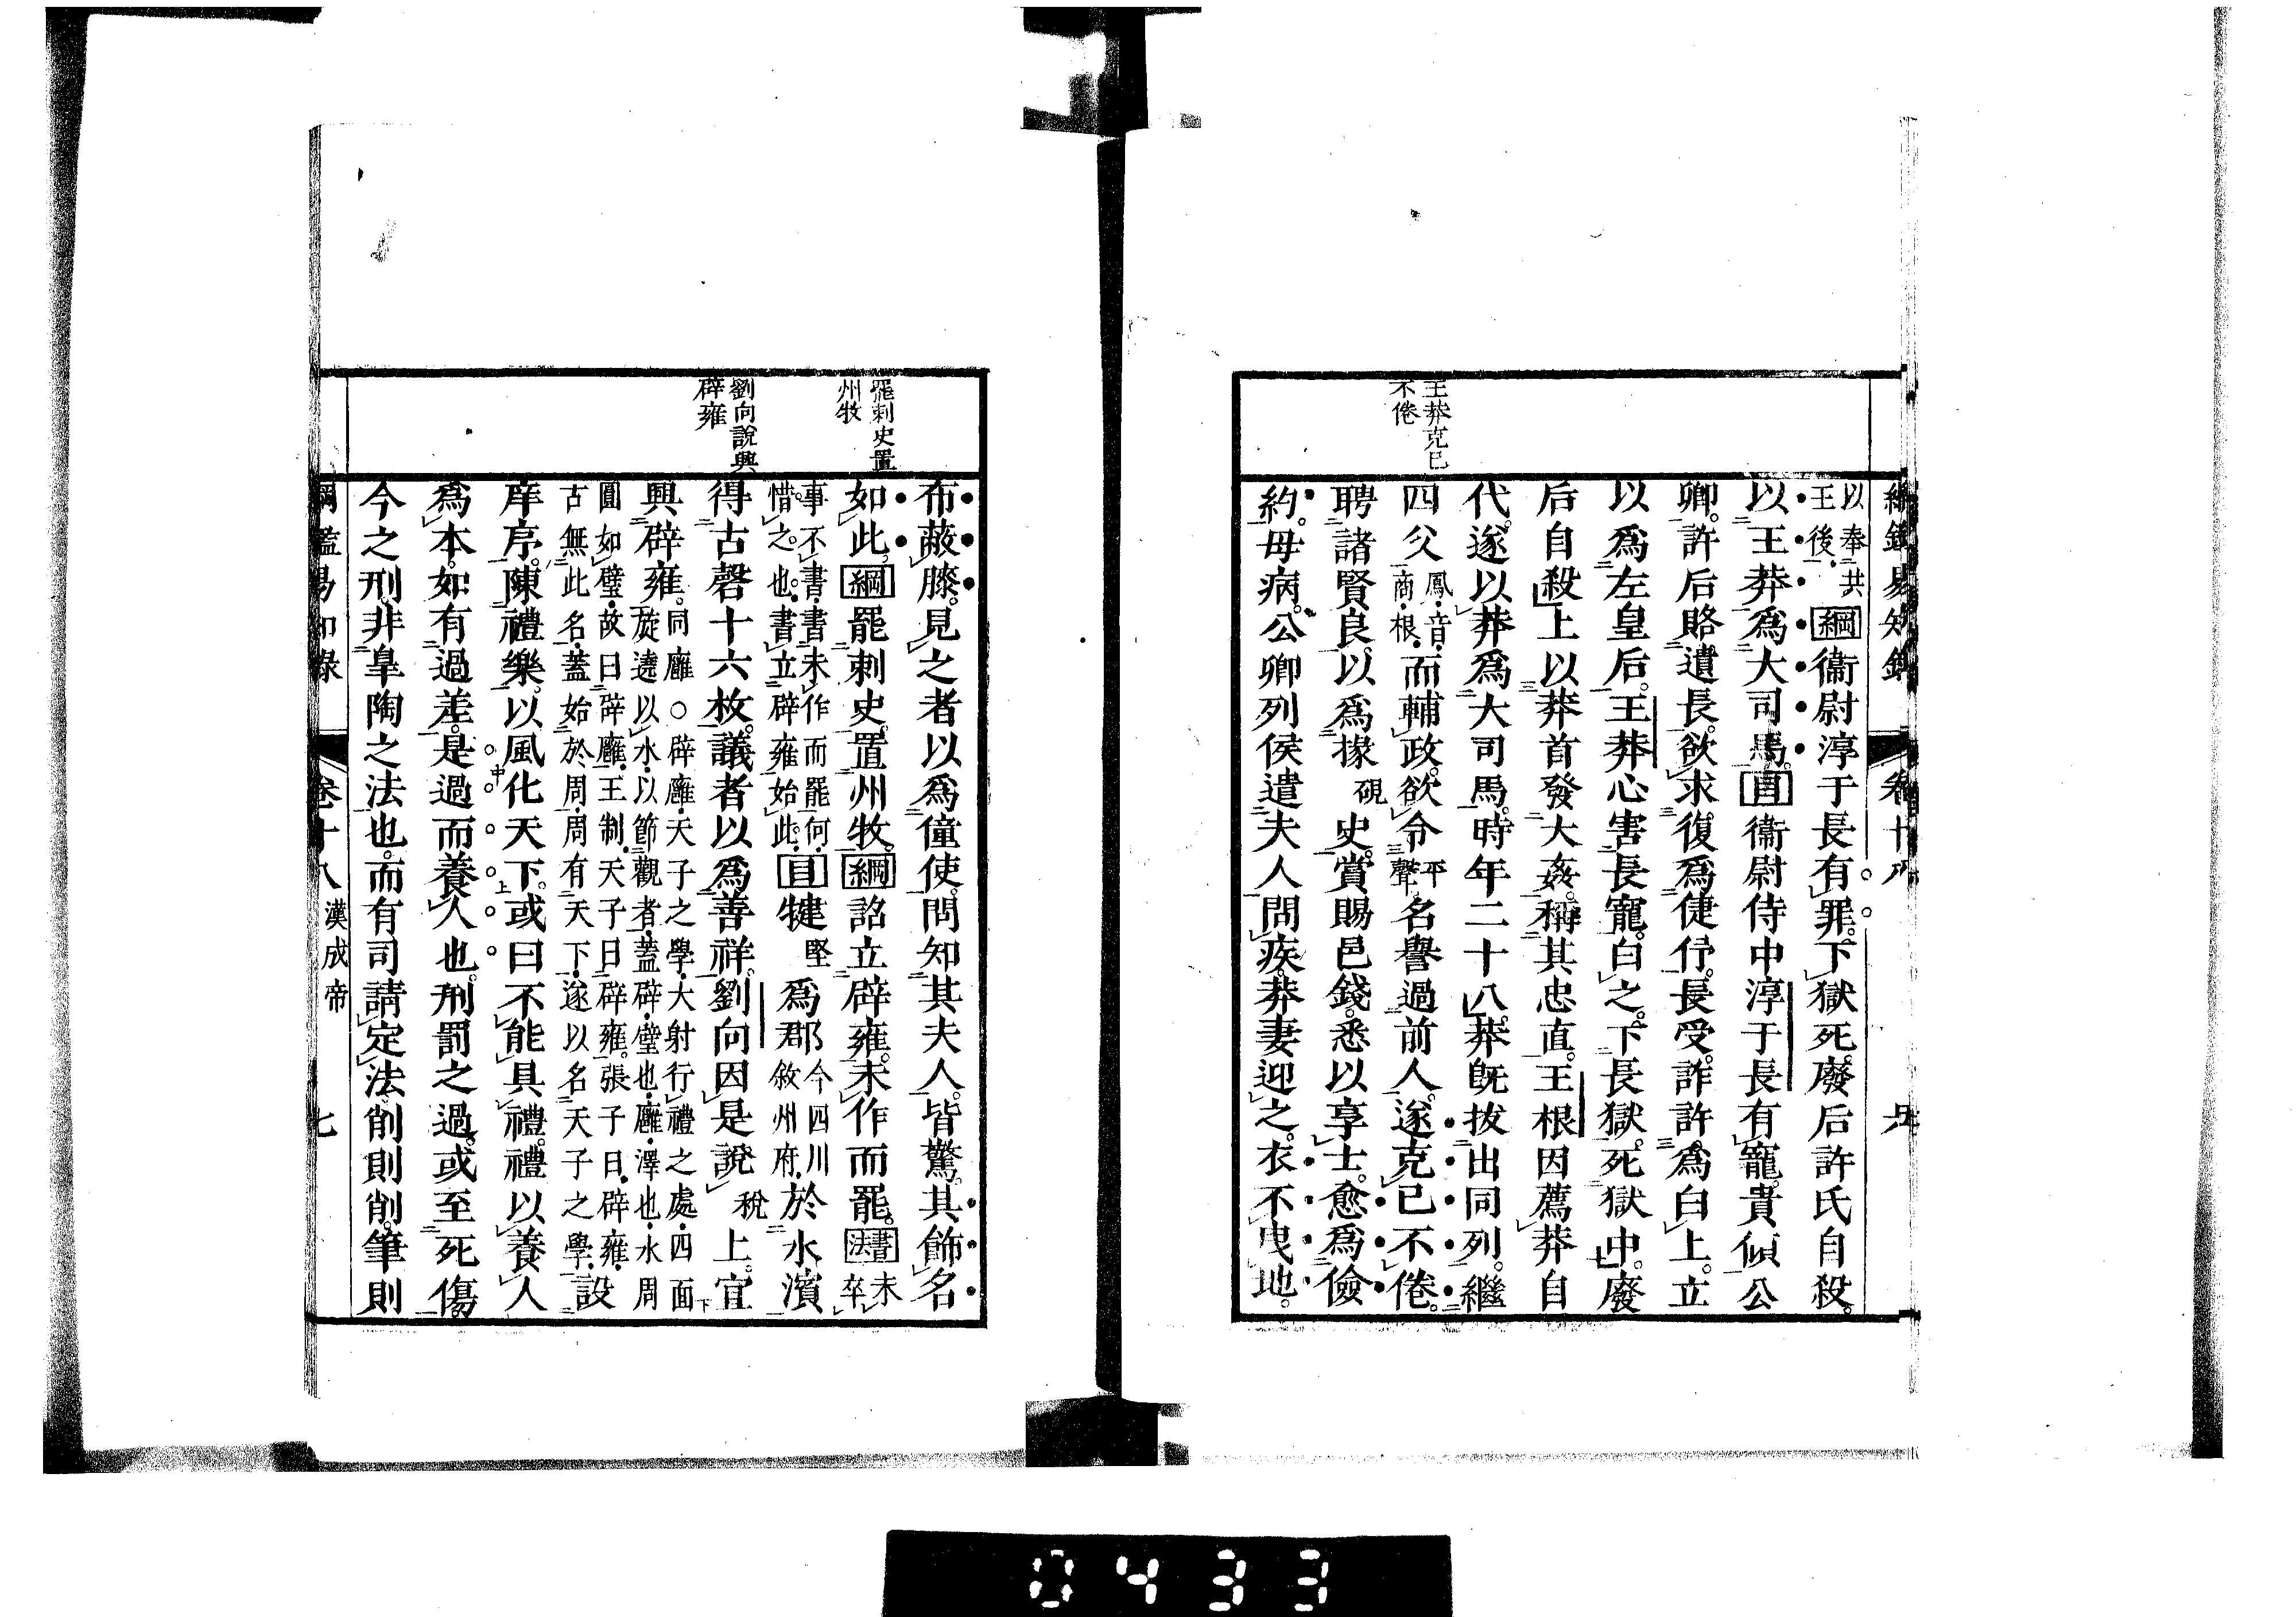 王莽克已
不倦
以奉共
王後
綱衞尉淳于長有罪下獄死廢后許氏自殺
以王莽爲大司馬目衞尉侍中淳于長有寵貴傾公
卿許后賂遺長欲求復爲倢伃長受詐許爲白上立
以爲左皇后王莽心害長寵白之下長獄死獄中廢
后自殺上以莽首發大姦稱其忠直王根因薦莽自
代遂以莽爲大司馬時年二十八莽旣拔出同列繼
四父鳳音商根而輔政欲令平聲名譽過前人遂克已不倦
聘諸賢良以爲掾硯史賞賜邑錢悉以享士愈爲儉
約母病公卿列侯遣夫人問疾莽妻迎之衣不曳地
罷刺史置
州牧
劉向說興
辟雍
布蔽膝見之者以爲僮使問知其夫人皆驚其飾名
如此綱罷刺史置州牧綱詔立辟雍未作而罷書法未卒
事不書書未作而罷何
惜之也書立辟雍始此
目犍堅爲郡今四川敘州府於水濱
得古磬十六枚議者以爲善祥劉向因是說稅上宜
興辟雍同廱○辟廱天子之學大射行禮之處四面
旋遶以水以節觀者蓋辟璧也廱澤也水周
圓如璧故曰辟廱王制天子曰辟雍張子曰辟雍
古無此名蓋始於周周有天下遂以名天子之學設
庠序陳禮樂以風化天下或曰不能具禮禮以養人
爲本如有過差是過而養人也刑罰之過或至死傷
今之刑非臯陶之法也而有司請定法削則削筆則
綱鑑易知錄 卷十八 漢成帝 七
0433